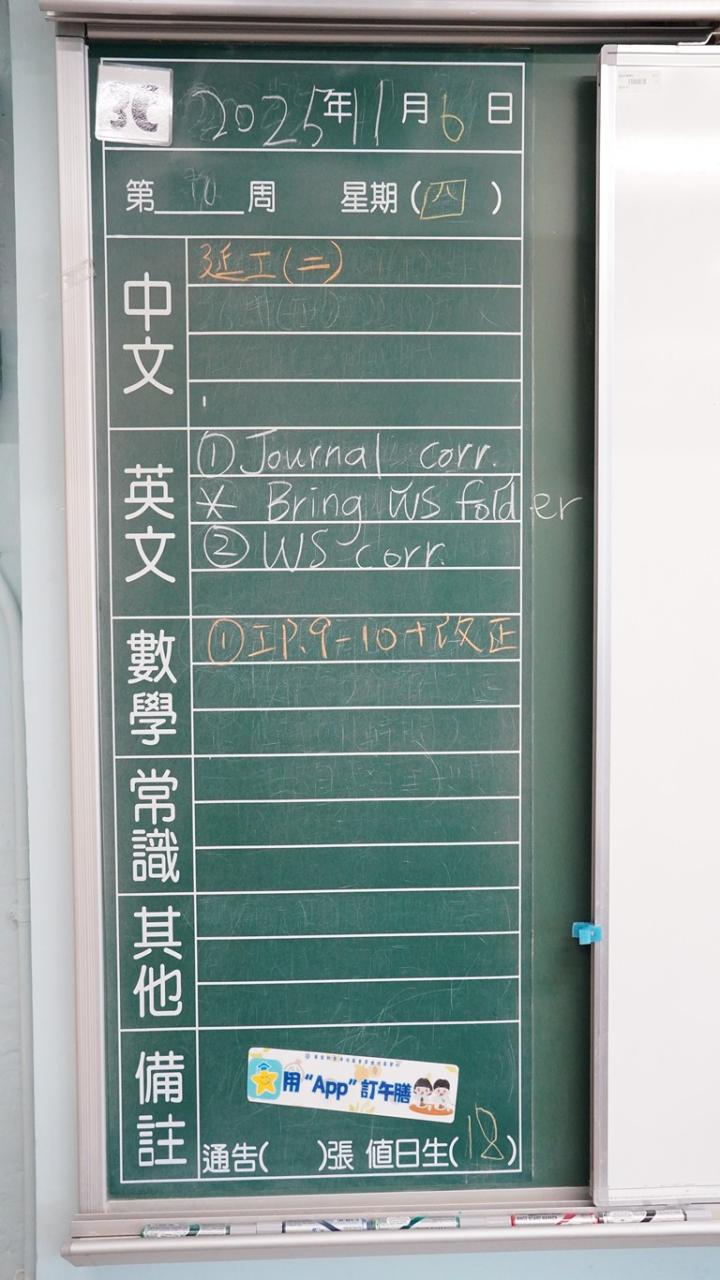 3C
2025年11月6日
第 周 星期(四)
中文
延工(二)
英文
① Journal corr.
* Bring WS folder
② WS corr.
數學
① 工P.9-10+改正
常識
其他
備註
用“App”訂午膳
通告( )張 值日生(18)